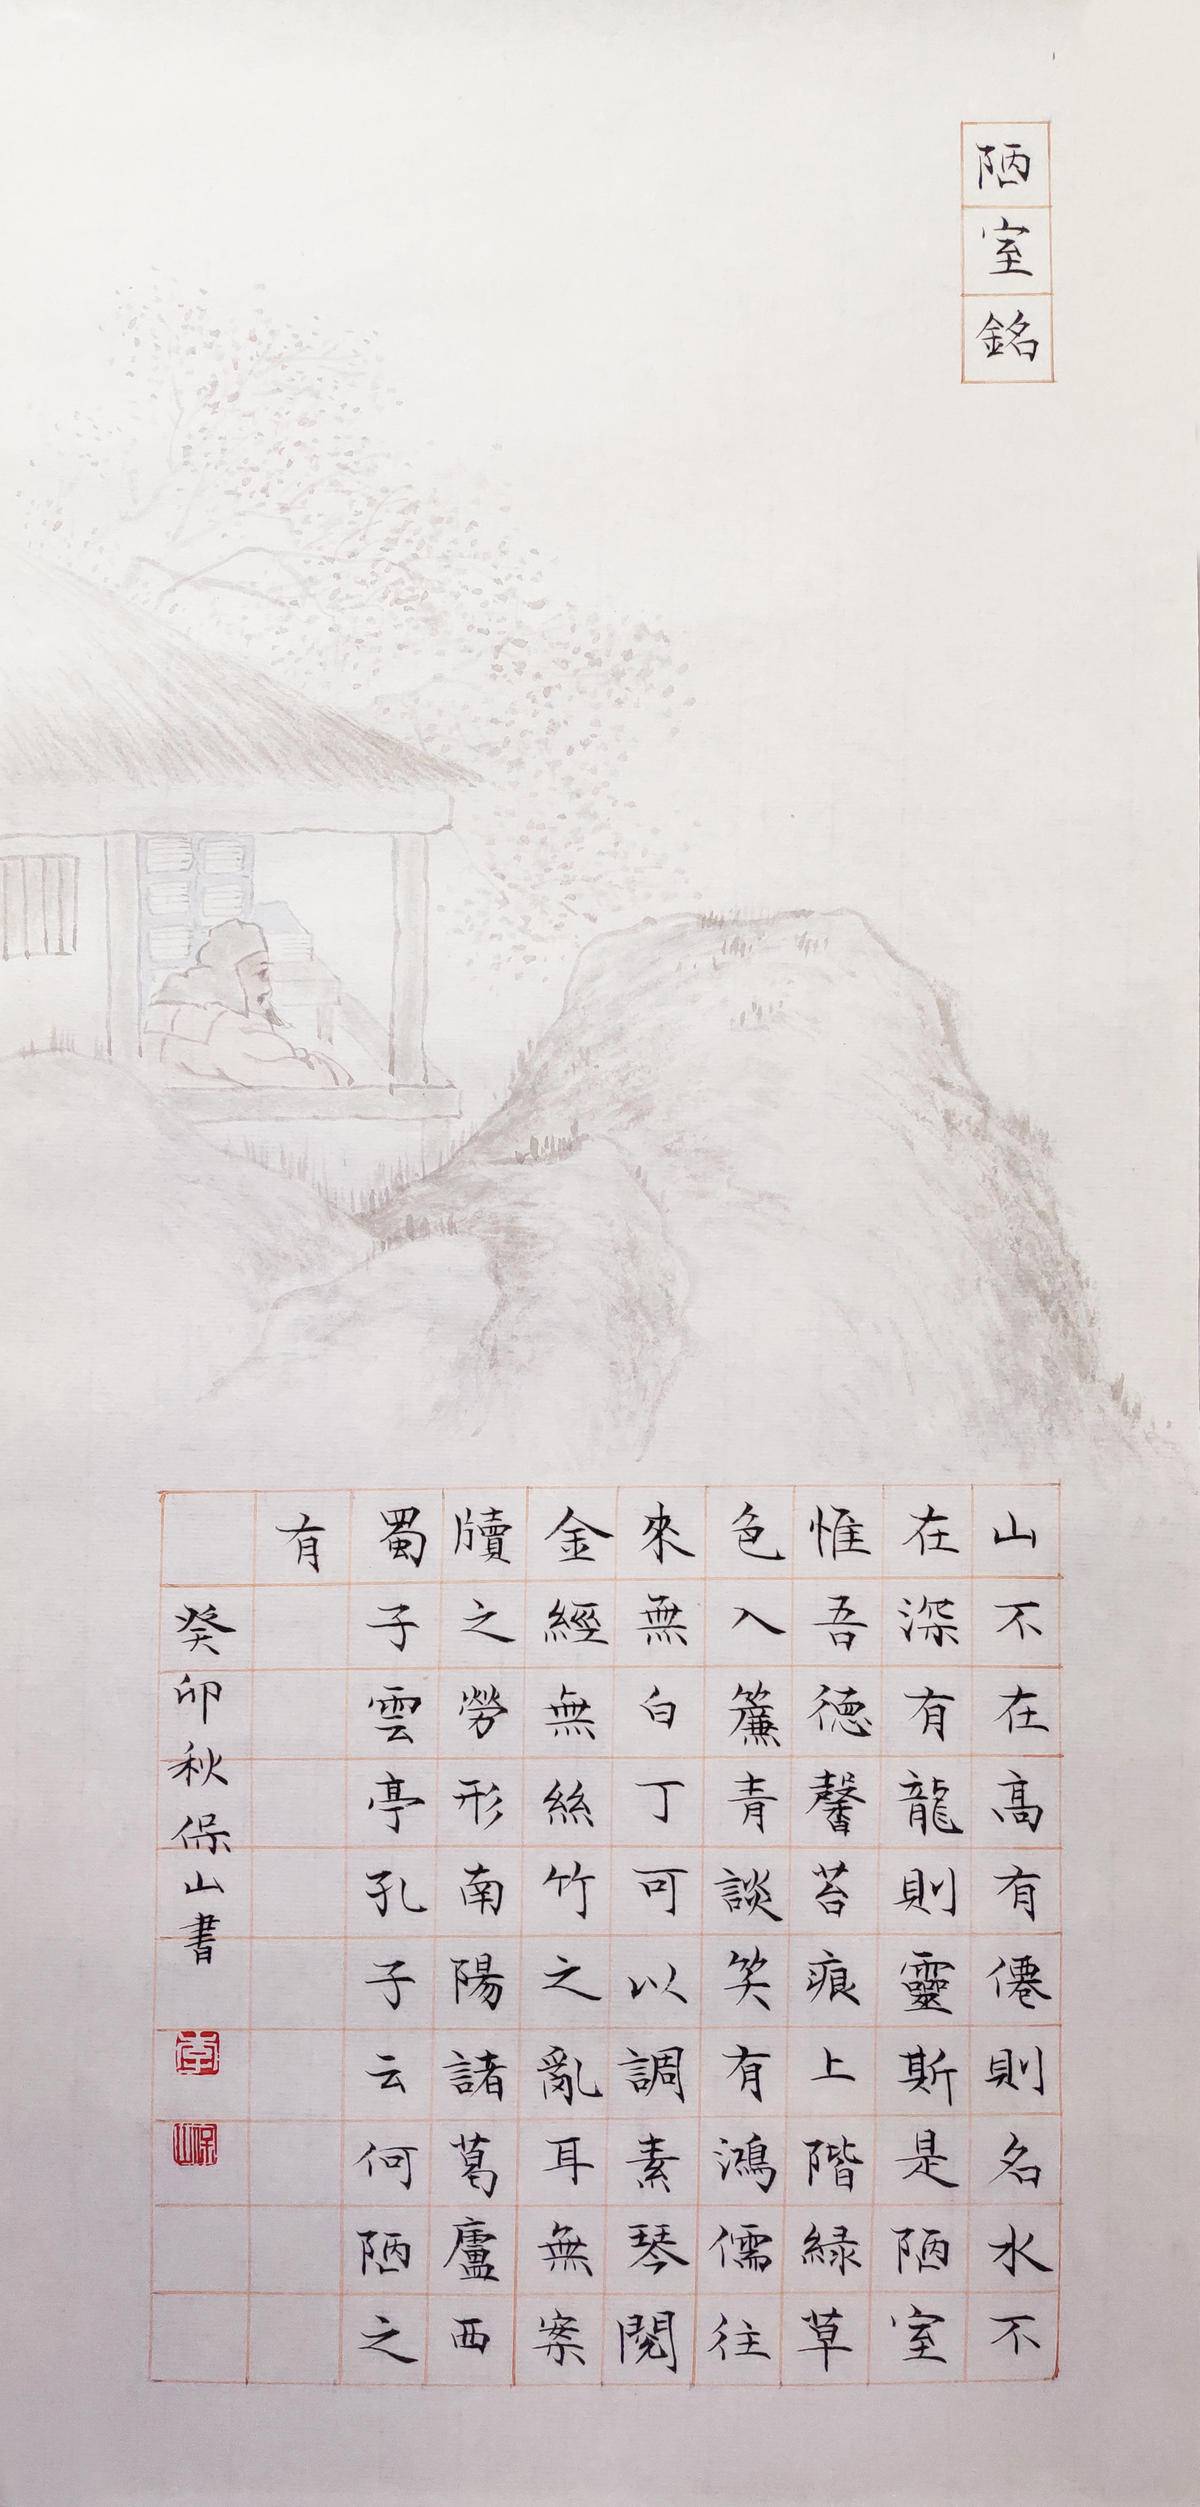 陋室銘
山不在高有僊則名水不
在深有龍則靈斯是陋室
惟吾德馨苔痕上階緑草
色入簾青談笑有鴻儒往
來無白丁可以調素琴閱
金經無絲竹之亂耳無案
牘之勞形南陽諸葛廬西
蜀子雲亭孔子云何陋之
有
癸卯秋保山書
保山